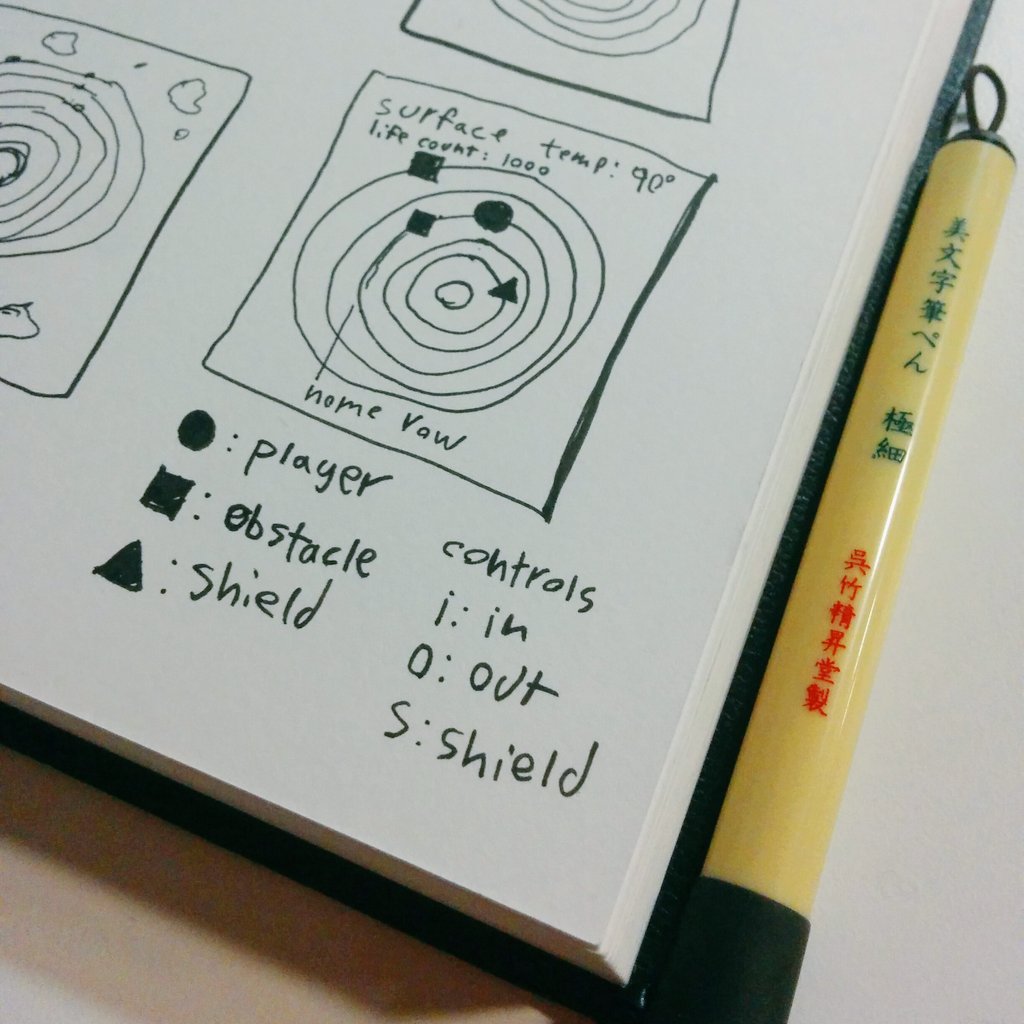 surface temp: 90°
life count: 1000
home raw
: player
: obstacle
: shield
controls
i: in
O: out
S: shield
美文字筆ぺん 極細
呉竹精昇堂製